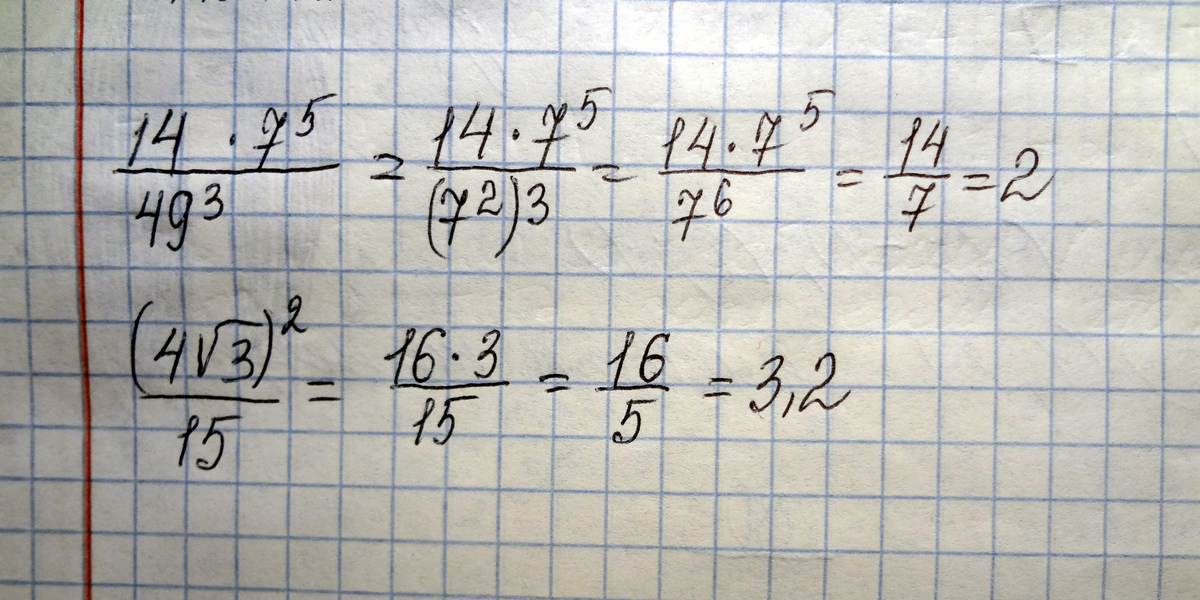 14 · 7⁵ / 49³ = 14 · 7⁵ / (7²)³ = 14 · 7⁵ / 7⁶ = 14 / 7 = 2
(4√3)² / 15 = 16 · 3 / 15 = 16 / 5 = 3,2